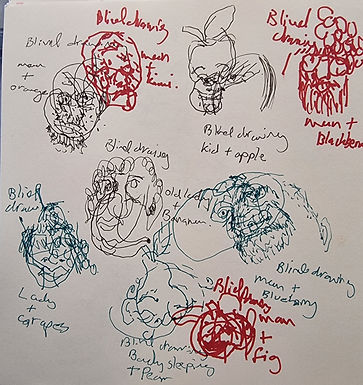 Blind drawing
man
+
orange
Blind drawing
man
+
Blind drawing
kid + apple
Blind
drawing
man +
Blackberry
Blind drawing
old lady
+
Banana
Blind
drawing
Lady
+
grapes
Blind drawing
man +
Blueberry
Blind drawing
Baby sleeping
+ Pear
Blind drawing
man
+
fig